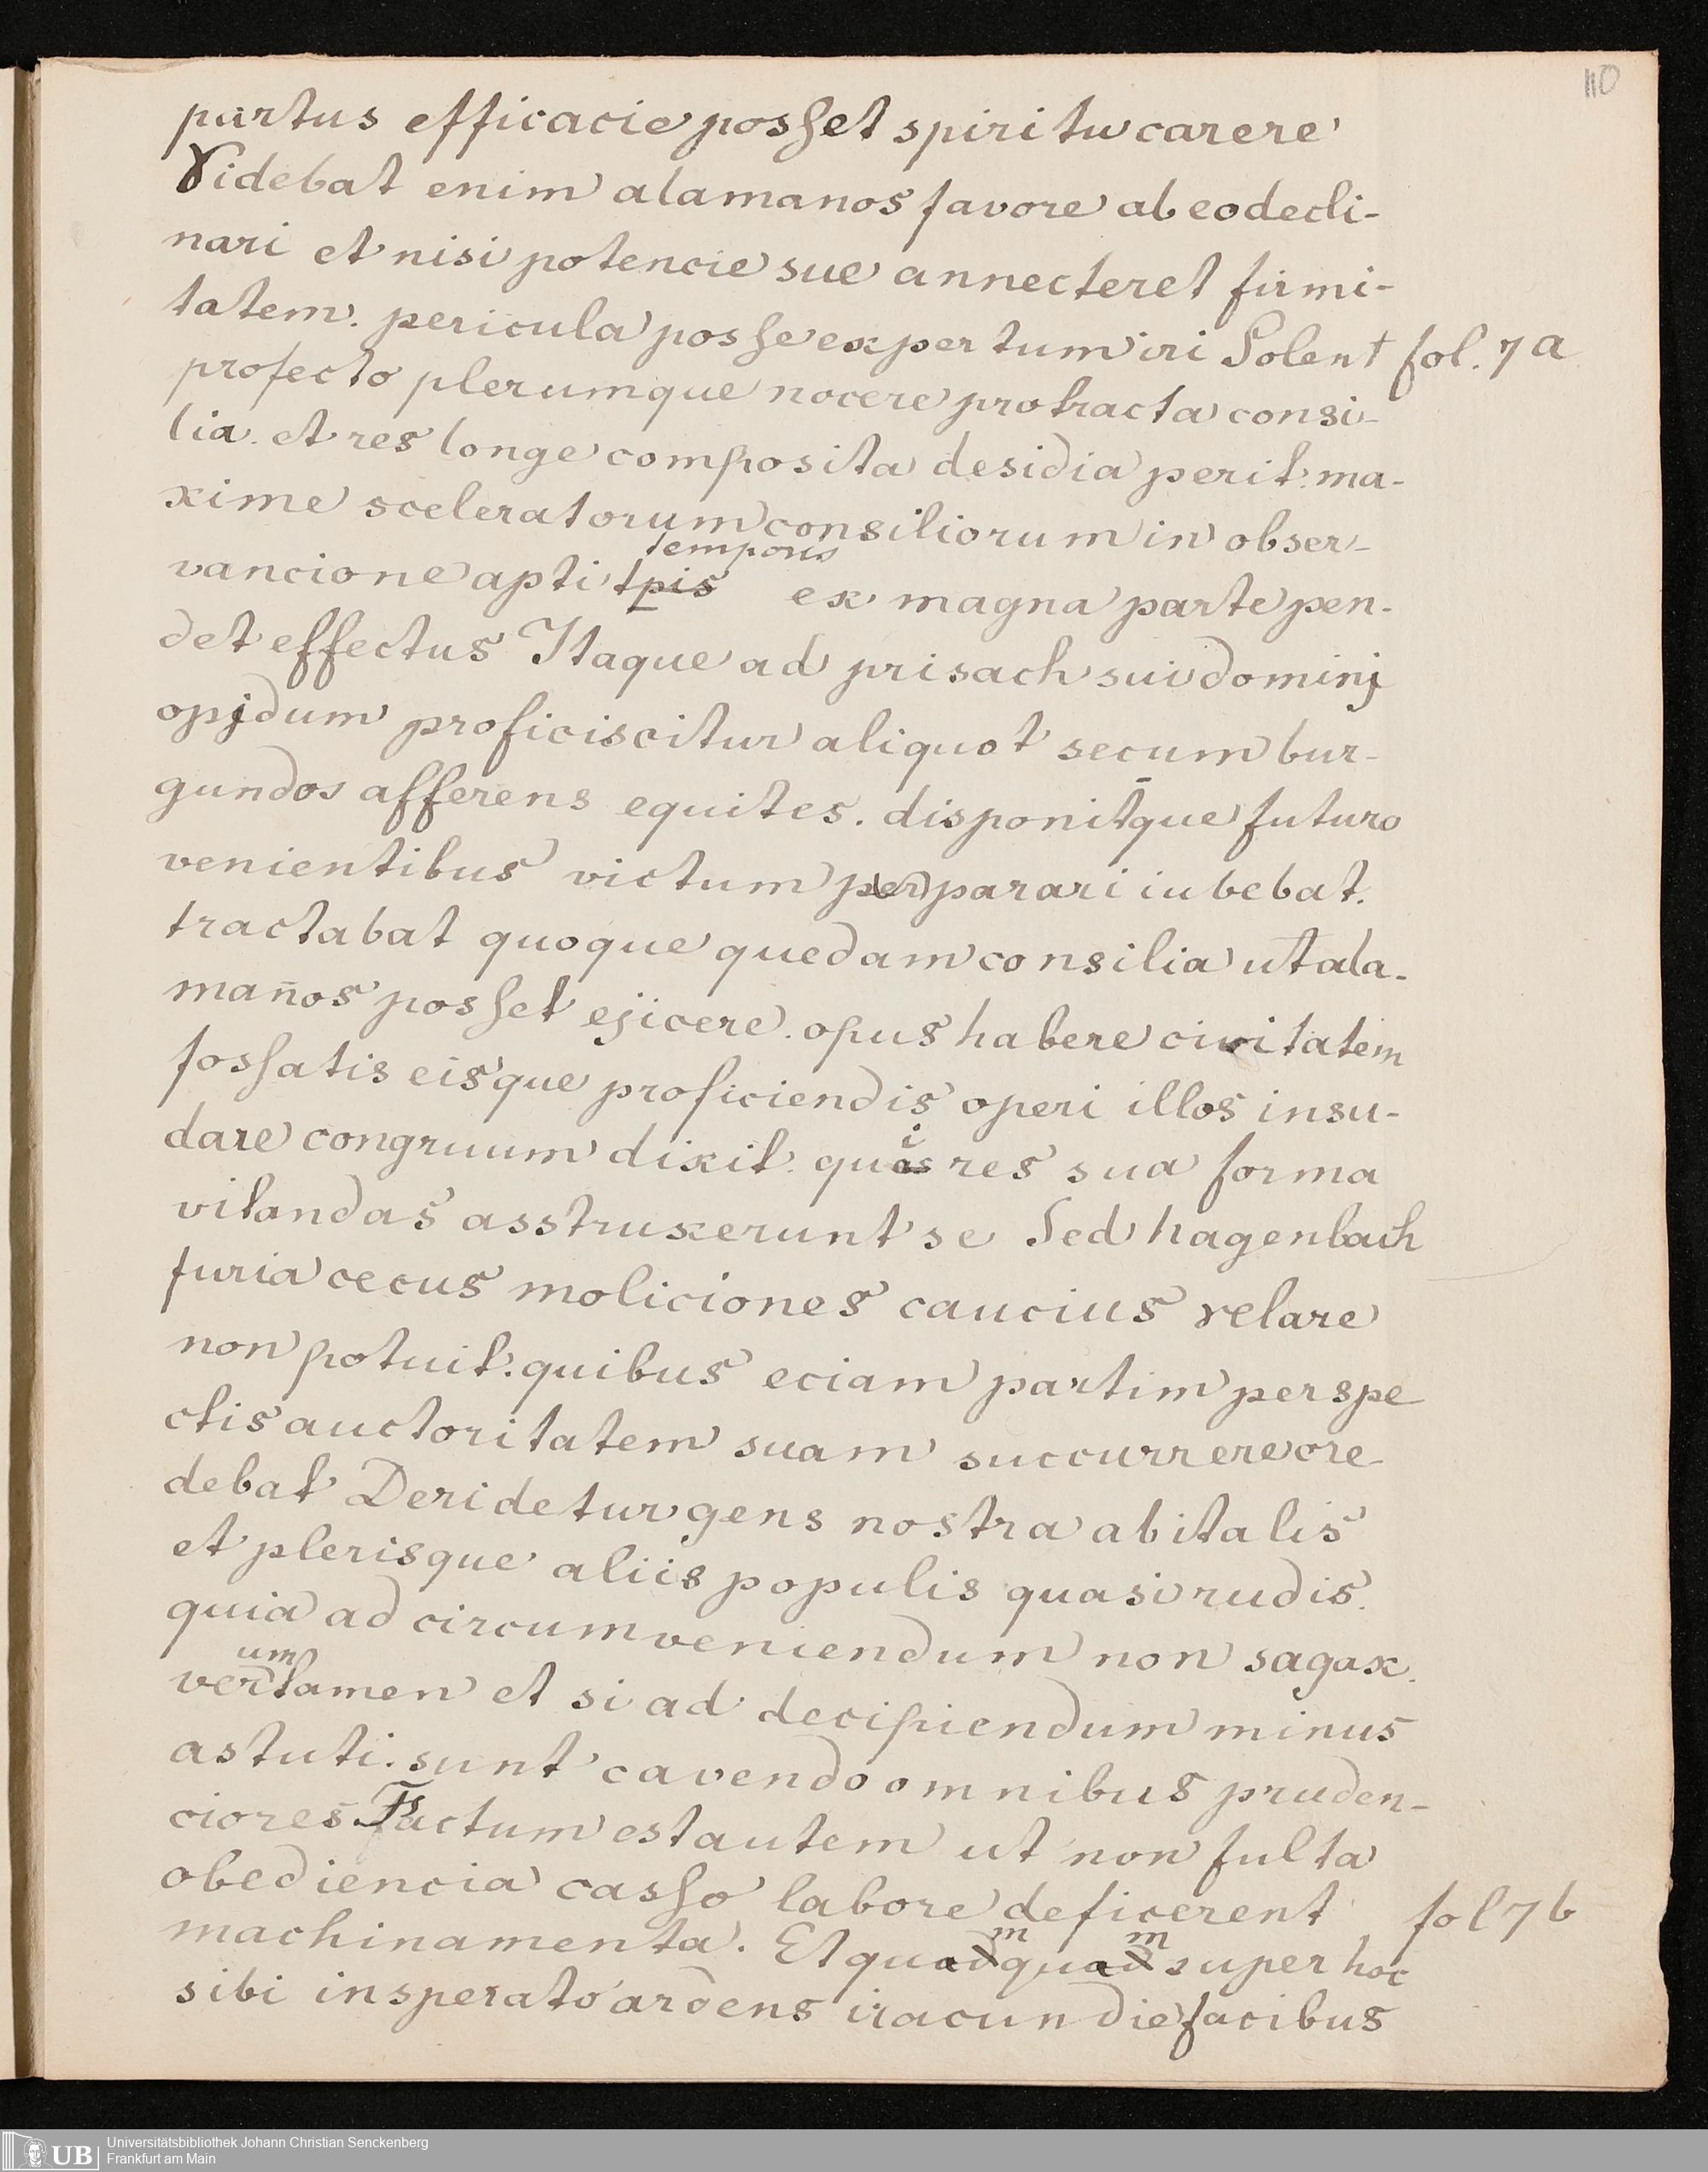 110
partus efficacie posset spiritu carere
Videbat enim alamanos favore ab eo decli-
nari et nisi potencie sue annecteret firmi-
tatem. pericula posse expertum iri Solent fol. 7a
profecto plerumque nocere protracta consi-
lia. et res longe composita desidia perit. ma-
xime sceleratorum consiliorum in obser-
temporis
vancione apti tpis ex magna parte pen-
det effectus Itaque ad prisach sui dominj
opjdum proficiscitur aliquot secum bur-
gundos afferens equites. disponit̄que futuro
venientibus victum per parari iubebat.
tractabat quoque quedam consilia ut ala-
man̄os posset ejicere. opus habere civitatem
fossatis eisque proficiendis operi illos insu-
dare congruum dixit. quis res sua forma
vitandas asstruxerunt se Sed hagenbach
furia cecus moliciones caucius velare
non potuit. quibus eciam partim perspe
ctis auctoritatem suam succurrere cre
debat Deridetur gens nostra ab italis
et plerisque aliis populis quasi rudis.
quia ad circumveniendum non sagax.
um
vertamen et si ad decipiendum minus
astuti. sunt cavendo omnibus pruden-
ciores Factum est autem ut non fulta
obediencia casso labore deficerent fol 7b
m m
machinamenta. Et quod quod super hoc
sibi insperato ardens iracundie facibus
UB Universitätsbibliothek Johann Christian Senckenberg
Frankfurt am Main